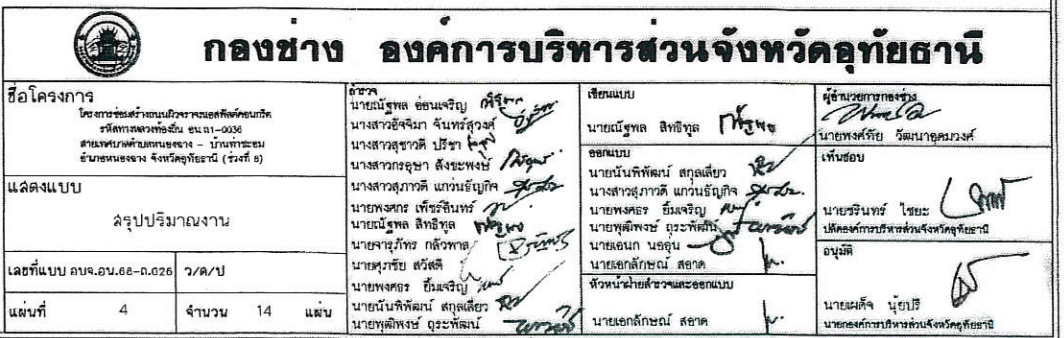 กองช่าง องค์การบริหารส่วนจังหวัดอุทัยธานี
ชื่อโครงการ
โครงการซ่อมสร้างถนนผิวจราจรแอสฟัลต์คอนกรีต
รหัสทางหลวงท้องถิ่น อน ถ1-0036
สายเทศบาลตำบลหนองฉาง - บ้านท่าชะอม
อำเภอหนองฉาง จังหวัดอุทัยธานี (ช่วงที่ 8)
แสดงแบบ
สรุปปริมาณงาน
เลขที่แบบ อบจ.อน.68-ถ.026 ว/ด/ป
แผ่นที่ 4 จำนวน 14 แผ่น
สำรวจ
นายณัฐพล อ่อนเจริญ
นางสาวอัจจิมา จันทร์สุวงศ์
นางสาวสุชาวดี ปรีชา
นางสาวกรอุษา สังขะพงษ์
นางสาวสุภาวดี แกว่นธัญกิจ
นายพงศกร เพ็ชร์อินทร์
นายณัฐพล สิทธิทูล
นายจารุภัทร กลัวพาล
นายศุภชัย สวัสดี
นายพงศธร ยิ้มเจริญ
นายนันทิพัฒน์ สกุลเลี่ยว
นายพุฒิพงษ์ ถุระพัฒน์
เขียนแบบ
นายณัฐพล สิทธิทูล
ออกแบบ
นายนันทิพัฒน์ สกุลเลี่ยว
นางสาวสุภาวดี แกว่นธัญกิจ
นายพงศธร ยิ้มเจริญ
นายพุฒิพงษ์ ถุระพัฒน์
นายเอนก นรอุ่น
นายเอกลักษณ์ สอาด
หัวหน้าฝ่ายสำรวจและออกแบบ
นายเอกลักษณ์ สอาด
ผู้อำนวยการกองช่าง
นายพงศ์ทัย วัฒนาอุดมวงศ์
เห็นชอบ
นายชรินทร์ ไชยะ
ปลัดองค์การบริหารส่วนจังหวัดอุทัยธานี
อนุมัติ
นายเผด็จ นุ้ยปรี
นายกองค์การบริหารส่วนจังหวัดอุทัยธานี